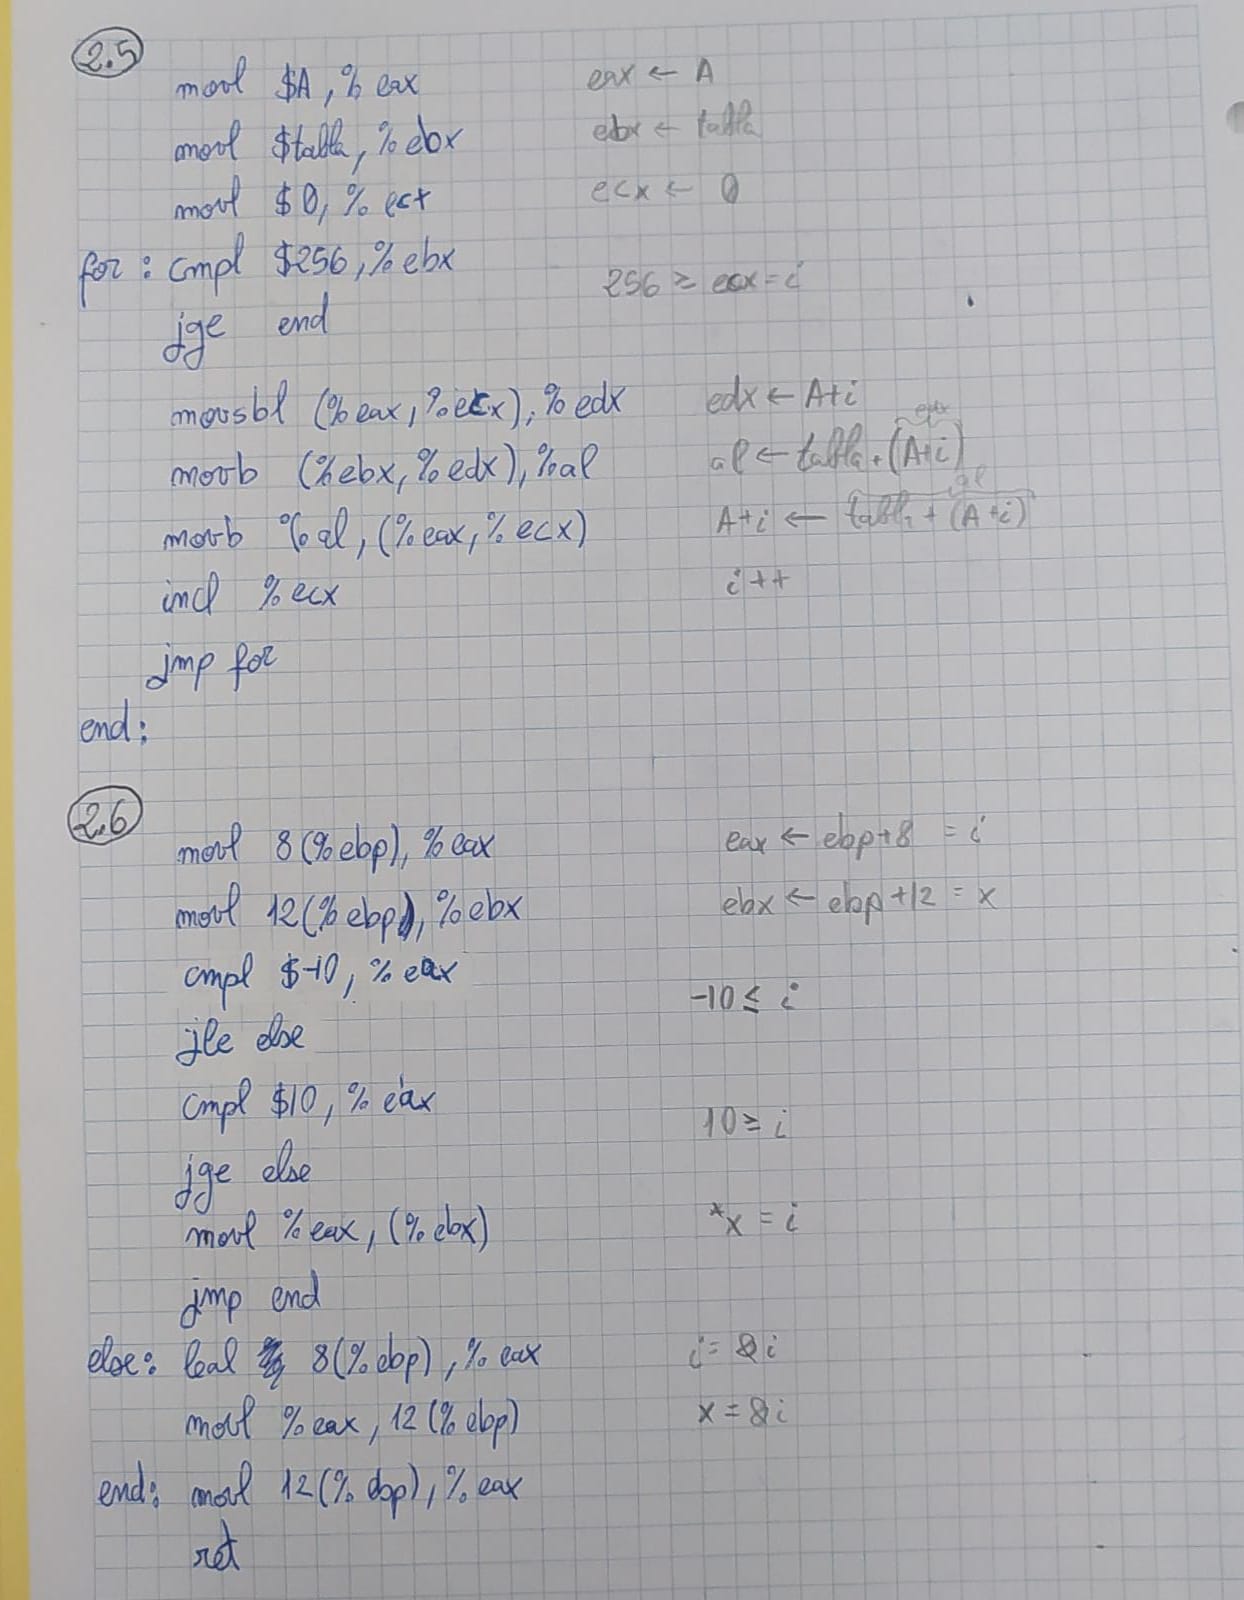 2.5
movl $A, %eax eax ← A
movl $tabla, %ebx ebx ← tabla
movl $0, %ecx ecx ← 0
for: cmpl $256, %ebx 256 ≥ ecx = i
jge end
movsbl (%eax, %ecx), %edx edx ← A+i
movb (%ebx, %edx), %al al ← tabla + (A+i)
movb %al, (%eax, %ecx) A+i ← tabla + (A+i)
incl %ecx i++
jmp for
end:
2.6
movl 8(%ebp), %eax eax ← ebp+8 = i
movl 12(%ebp), %ebx ebx ← ebp+12 = x
cmpl $-10, %eax -10 ≤ i
jle else
cmpl $10, %eax 10 ≥ i
jge else
movl %eax, (%ebx) *x = i
jmp end
else: leal 8(%ebp), %eax i = &i
movl %eax, 12(%ebp) x = &i
end: movl 12(%ebp), %eax
ret